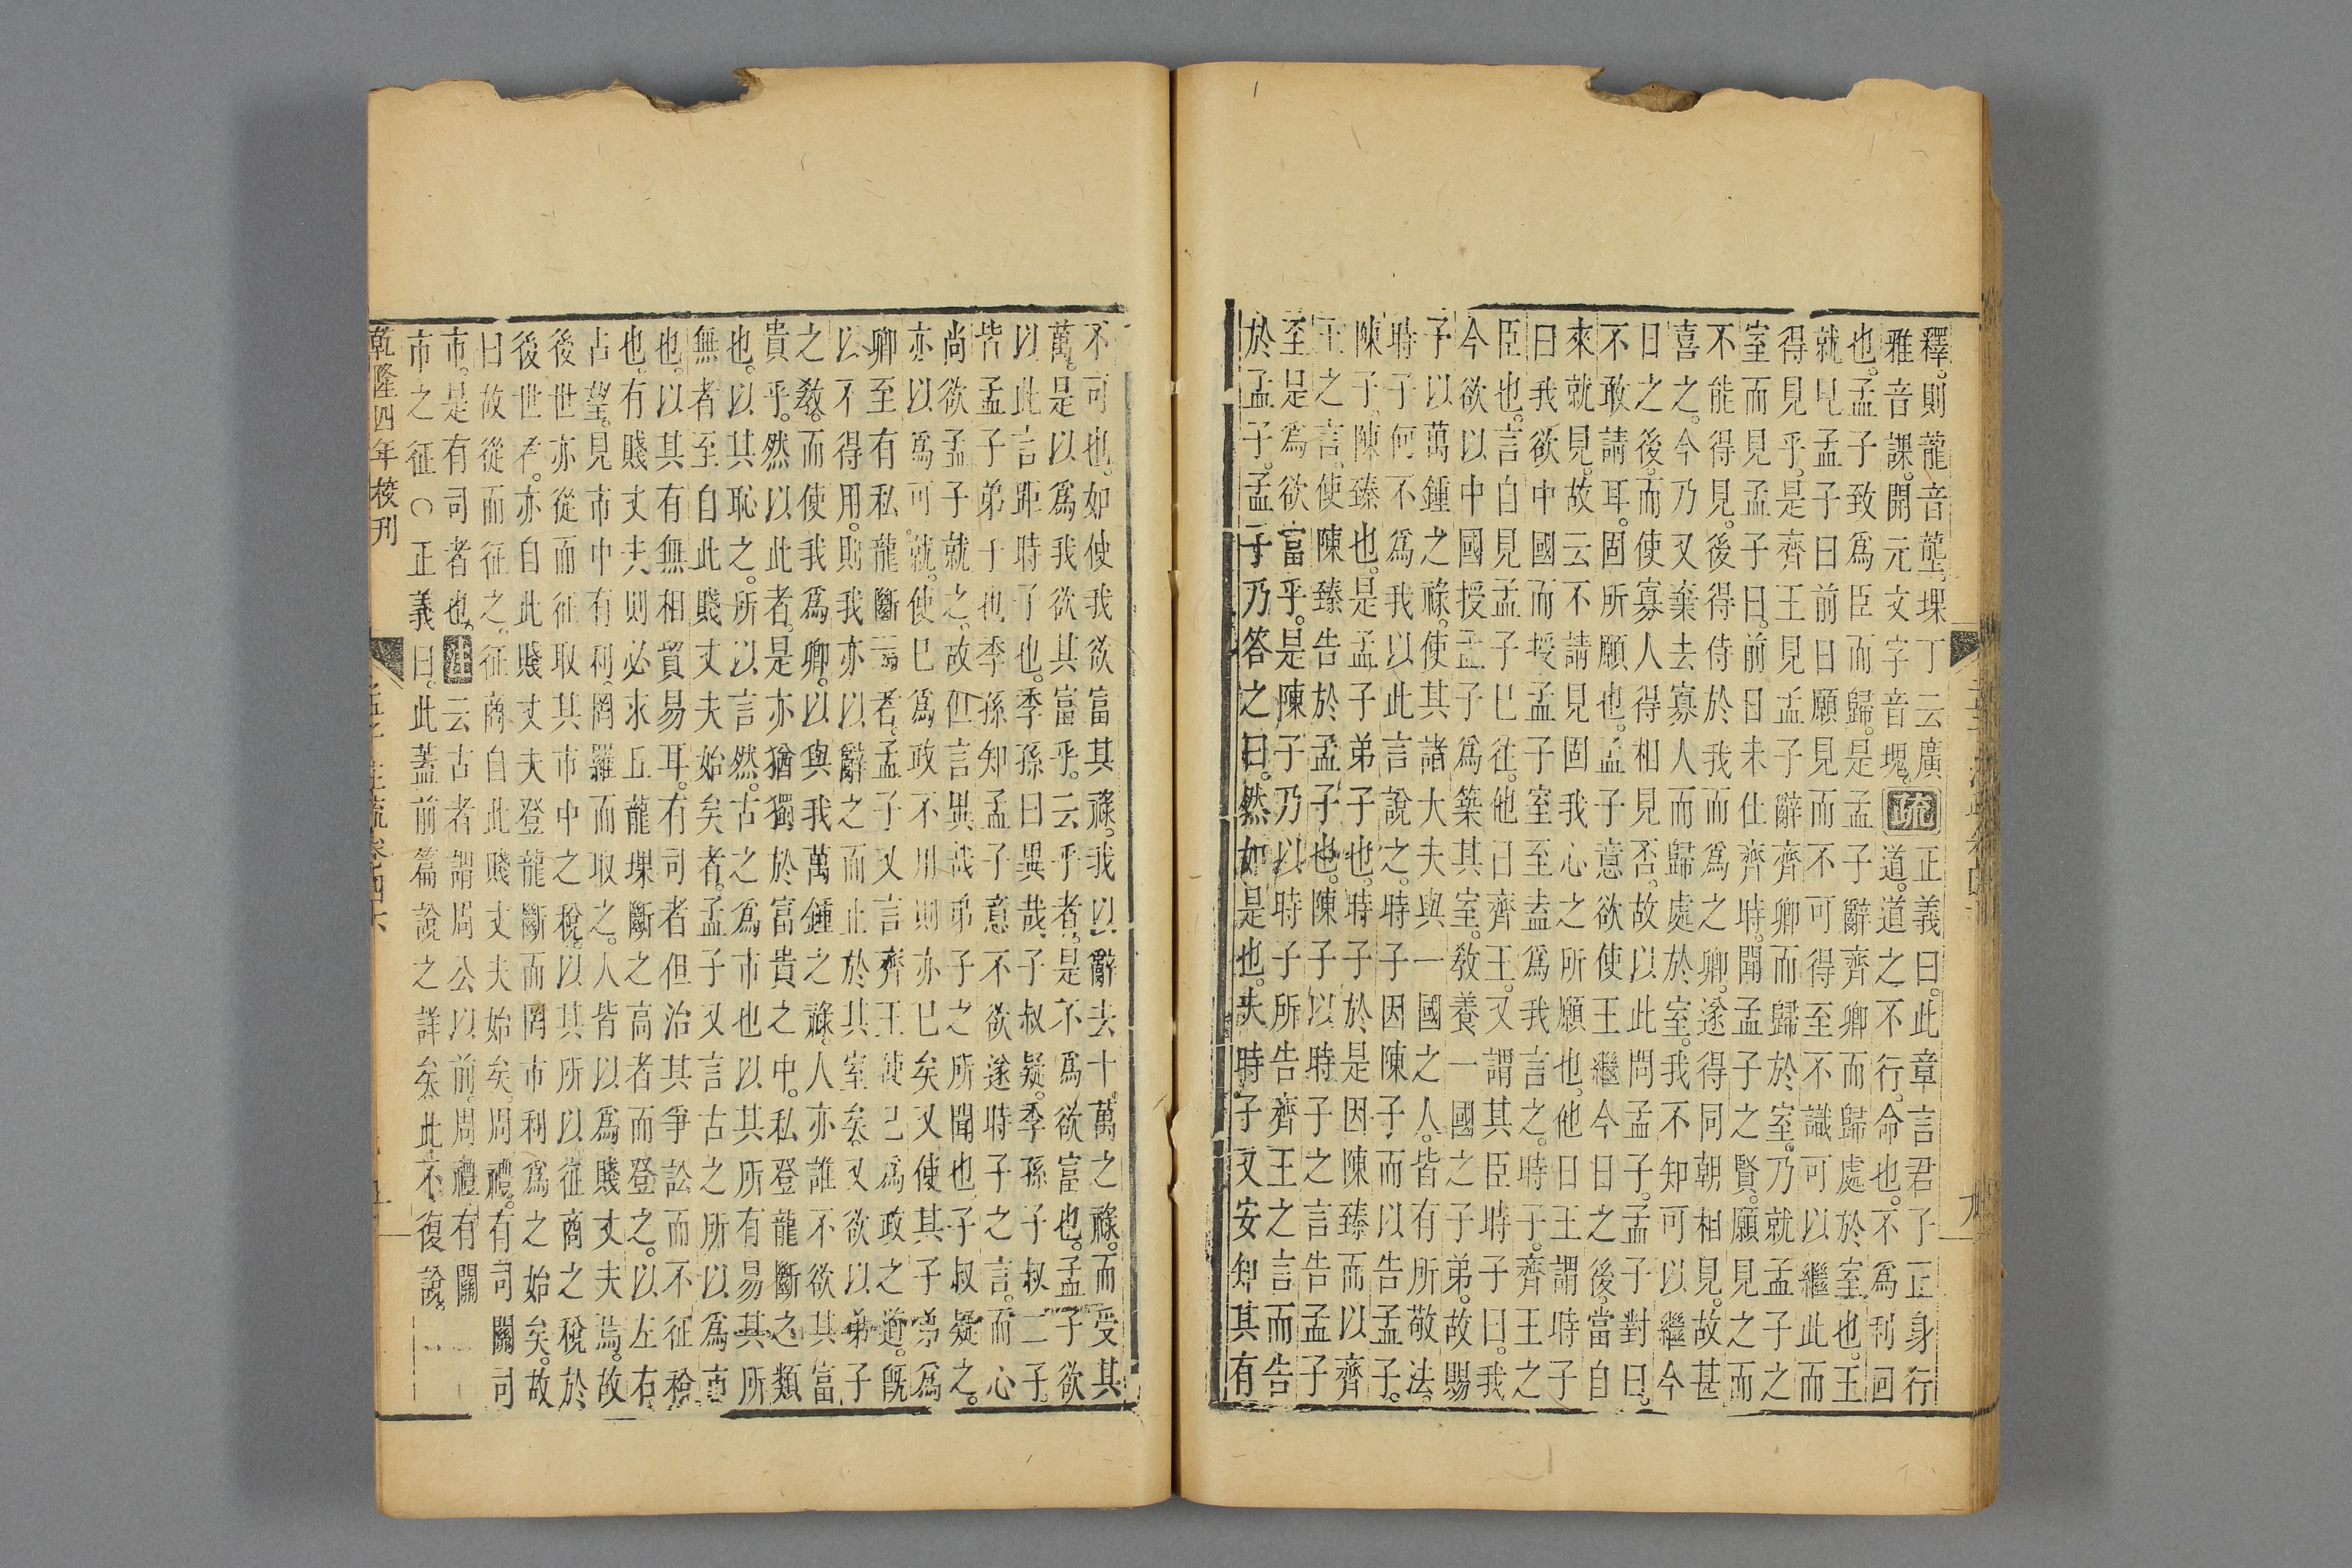 釋。則龍音壟。堁丁云廣正義曰。此章言君子正身行
雅音課。開元文字音塊。疏道。道之不行。命也。不爲利回
也。孟子致爲臣而歸。是孟子辭齊卿而歸處於室也。王
就見孟子曰前日願見而不可得至不識可以繼此而
得見乎。是齊王見孟子辭齊卿而歸於室。乃就孟子之
室而見孟子曰。前日未仕齊時。聞孟子之賢。願見之而
不能得見。後得侍於我而爲之卿。遂得同朝相見。故甚
喜之。今乃又棄去寡人而歸處於室。我不知可以繼今
日之後。而使寡人得相見否。故以此問孟子。孟子對曰。
不敢請耳。固所願也。孟子意欲使王繼今日之後。當自
來就見。故云不請見固我心之所願也。他日王謂時子
曰我欲中國而授孟子室至盍爲我言之。時子。齊王之
臣也。言自見孟子已往。他日齊王。又謂其臣時子曰。我
今欲以中國授孟子爲築其室。敎養一國之子弟。故賜
予以萬鍾之祿。使其諸大夫與一國之人。皆有所敬法。
時子何不爲我以此言說之。時子因陳子而以告孟子。
陳子。陳臻也。是孟子弟子也。時子於是因陳臻而以齊
王之言。使陳臻告於孟子也。陳子以時子之言告孟子
至是爲欲富乎。是陳子乃以時子所告齊王之言而告
於孟子。孟子乃答之曰。然如是也。夫時子又安知其有
不可也。如使我欲富其祿。我以辭去十萬之祿。而受其
萬。是以爲我欲其富乎。云乎者。是不爲欲富也。孟子欲
以此言距時子也。季孫曰異哉。子叔疑。季孫子叔二子。
皆孟子弟子也季孫知孟子意不欲遂時子之言。而心
尚欲孟子就之。故但言異哉弟子之所聞也。子叔疑之。
亦以爲可就。使已爲政不用則亦已矣又使其子弟爲
卿至有私龍斷焉者。孟子又言齊王使己爲政之道。旣
以不得用。則我亦以辭之而止於其室矣。又欲以弟子
之敎。而使我爲卿。以與我萬鍾之祿。人亦誰不欲其富
貴乎。然以此者。是亦猶獨於富貴之中。私登龍斷之類
也。以其恥之。所以言然。古之爲市也以其所有易其所
無者至自此賤丈夫始矣者。孟子又言古之所以爲市
也。以其有無相貿易耳。有司者但治其爭訟而不征稅
也。有賤丈夫則必求丘龍堁斷之高者而登之。以左右
占望。見市中有利。罔羅而取之。人皆以爲賤丈夫焉。故
後世亦從而征取其市中之稅。以其所以征商之稅於
後世者。亦自此賤丈夫登龍斷而罔市利爲之始矣。故
曰故從而征之。征商自此賤丈夫始矣。周禮。有司關司
市。是有司者也。注云古者謂周公以前。周禮有關
市之征○正義曰。此蓋前篇說之詳矣此不復說。
乾隆四年校刊